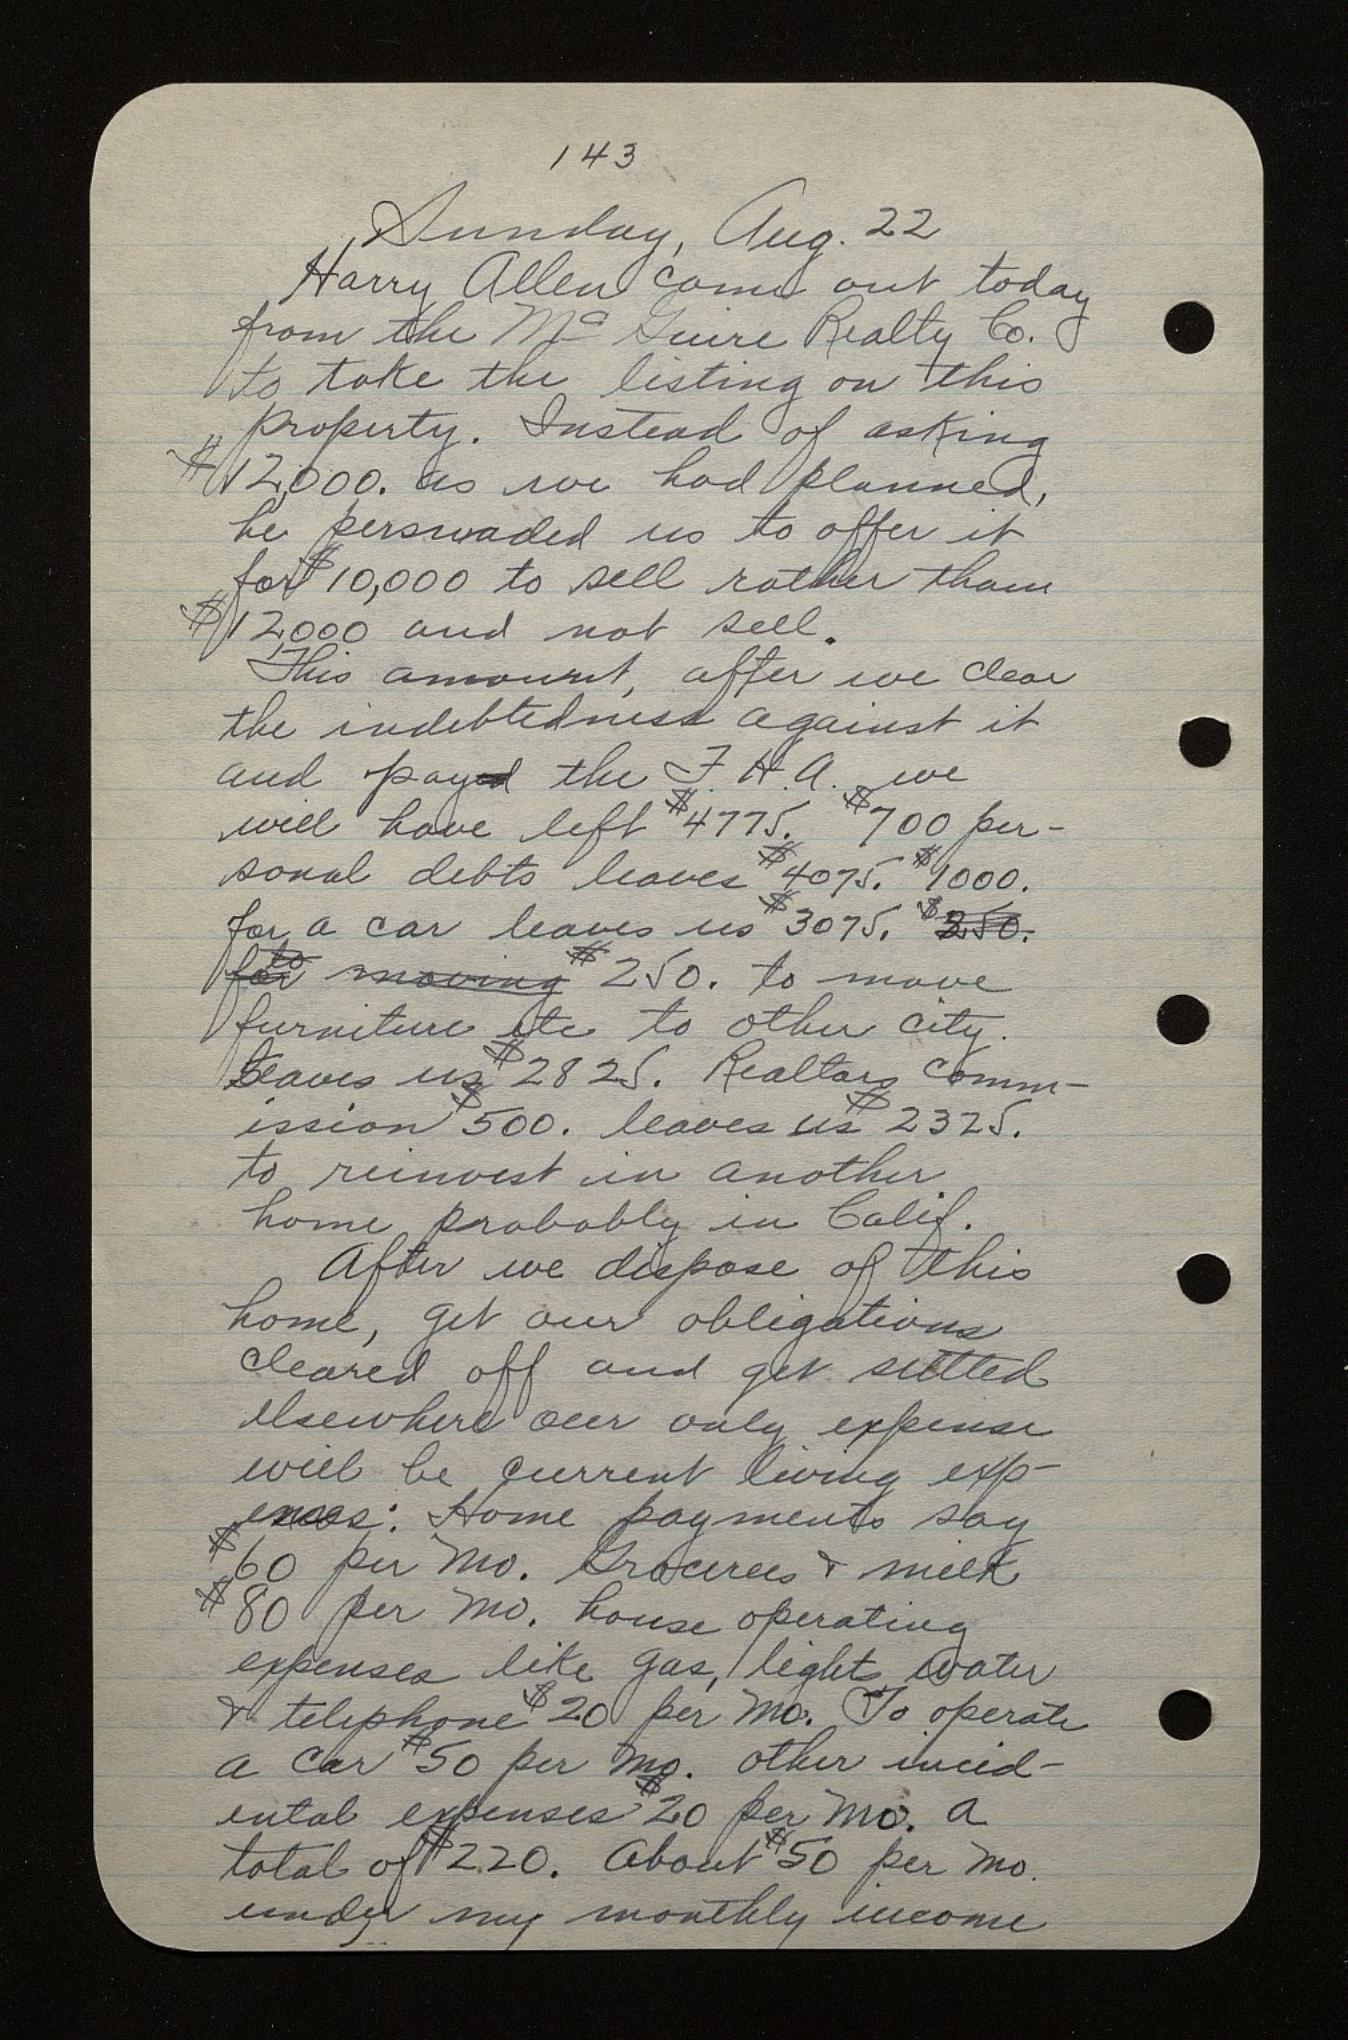 143
Sunday, Aug. 22
Harry Allen came out today
from the McGuire Realty Co.
to take the listing on this
property. Instead of asking
$12,000. as we had planned,
he perswaded us to offer it
for $10,000 to sell rather than
$12000 and not sell.
This amount, after we clear
the indebtedness against it
and payed the F.H.A. we
will have left $4775. $700 per-
sonal debts leaves $4075. $1000.
for a car leaves us $3075. $350.
for to moving $250. to move
furniture etc to other city.
Leaves us $2825. Realtors comm-
ission $500. leaves us $2325.
to reinvest in another
home, probably in Calif.
After we dispose of this
home, get our obligations
cleared off and get settled
elsewhere our only expense
will be current living exp-
enses: Home payments say
$60 per mo. Groceries & milk
$80 per mo. house operating
expenses like gas, light, water
& telephone $20 per mo. To operate
a car $50 per mo. other incid-
ental expenses $20 per mo. a
total of $220. About $50 per mo.
under my monthly income